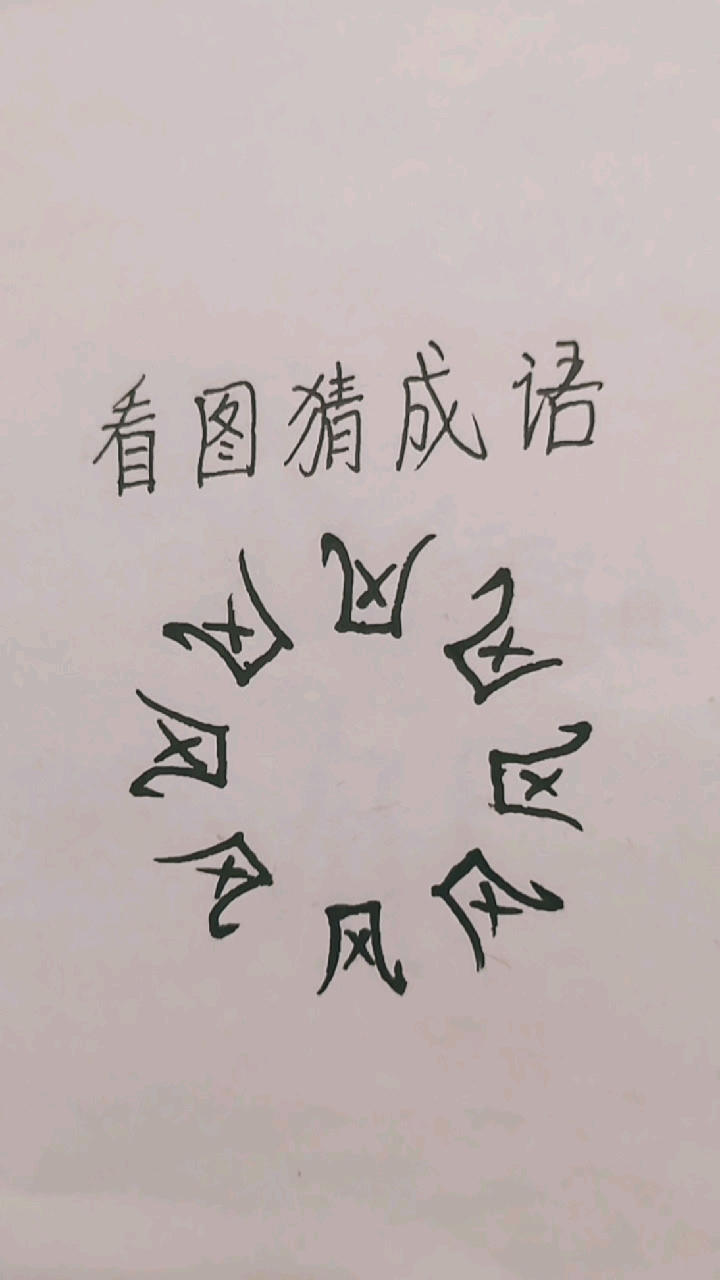 看图猜成语
风
风
风
风
风
风
风
风